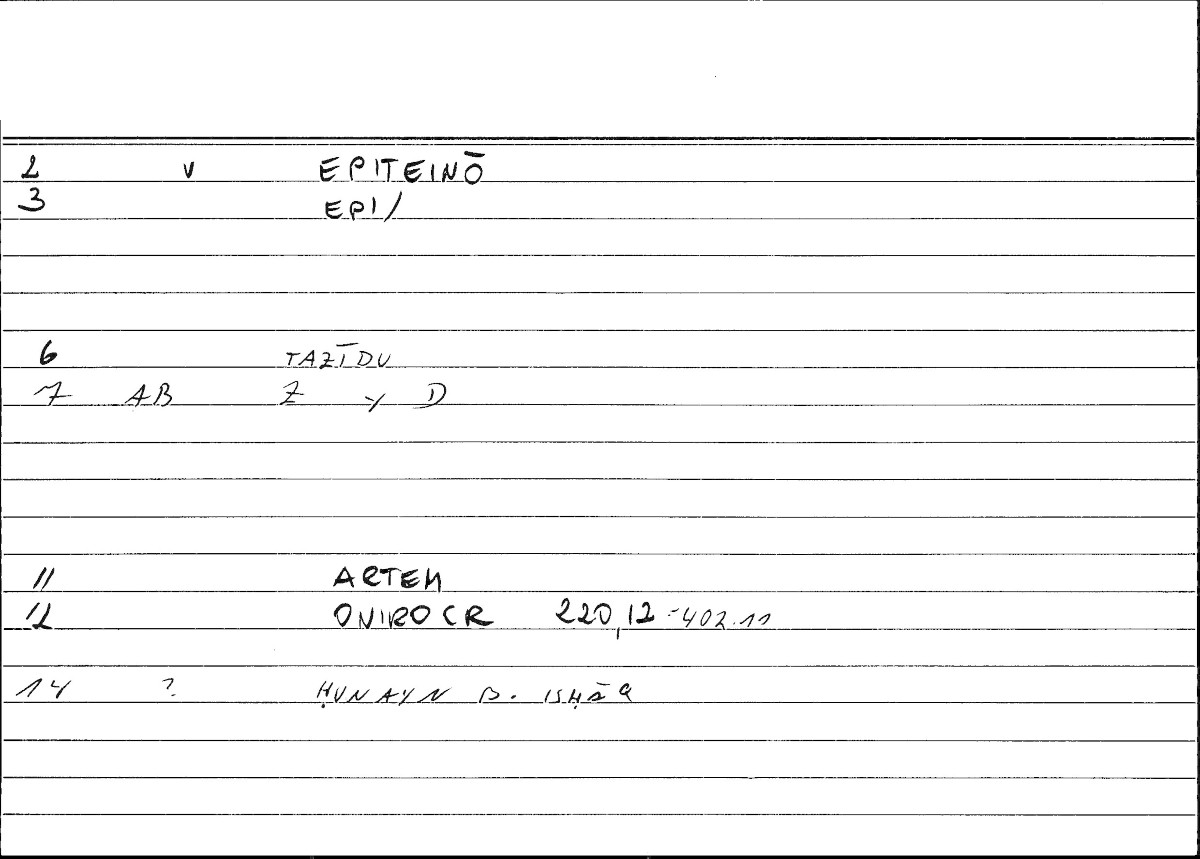 2 v EPITEINŌ
3 EPI/
6 TAZĪDU
7 AB Z Y D
11 ARTEM
12 ONIROCR 220,12 = 402.11
14 ? ḤUNAYN B. ISḤĀQ